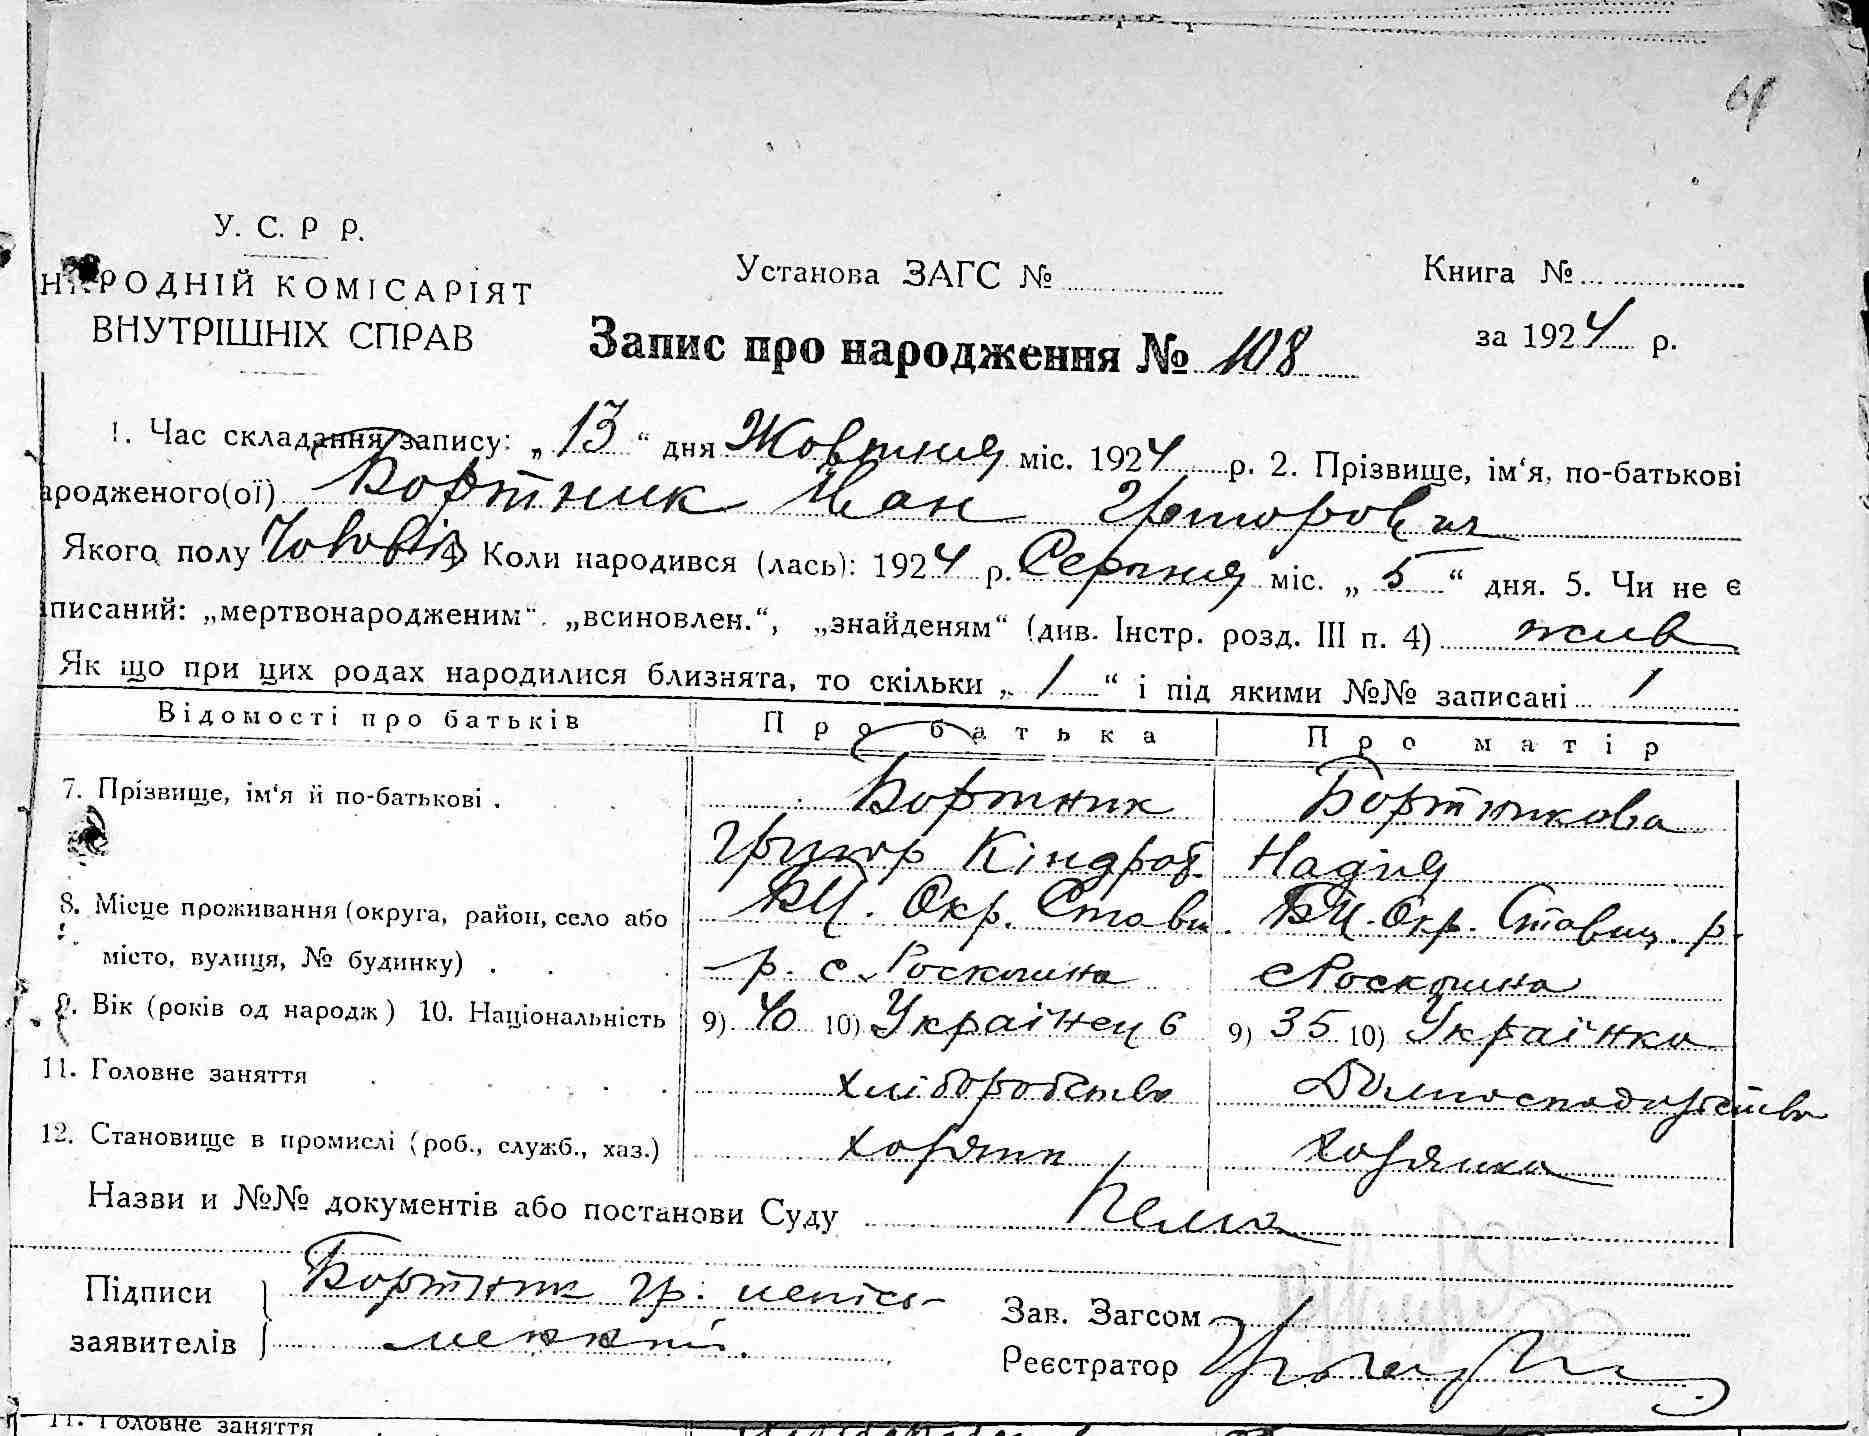 У. С. Р Р.
НАРОДНІЙ КОМІСАРІЯТ
ВНУТРІШНІХ СПРАВ
Установа ЗАГС №
Книга №
Запис про народження № 108
за 1924 р.
1. Час складання запису: „13“ дня Жовтня міс. 1924 р. 2. Прізвище, ім‘я, по-батькові
ародженого(ої) Бортник Іван Григорович
Якого полу Чоловіч 4. Коли народився (лась): 1924 р. Серпня міс. „5“ дня. 5. Чи не є
писаний: „мертвонародженим“. „всиновлен.“, „знайденям“ (див. Інстр. розд. III п. 4) жив
Як що при цих родах народилися близнята, то скільки „/“ і під якими №№ записані /
Відомості про батьків Про батька Про матір
7. Прізвище, ім‘я й по-батькові . Бортник Бортникова
Григор Кіндрат. Надія
8. Місце проживання (округа, район, село або БЦ. Окр. Стави. БЦ. Окр. Ставищ. р.
місто, вулиця, № будинку) . р. с Роскошна с Роскошна
9. Вік (років од народж) 10. Національність 9) 40 10) Українець 9) 35 10) Українка
11. Головне заняття хліборобство Домогосподарство
12. Становище в промислі (роб., служб., хаз.) хозяїн хозяйка
Назви и №№ документів або постанови Суду Нема
Підписи Бортник гр: неписьменний.
заявителів
Зав. Загсом
Реєстратор
11. Головне заняття